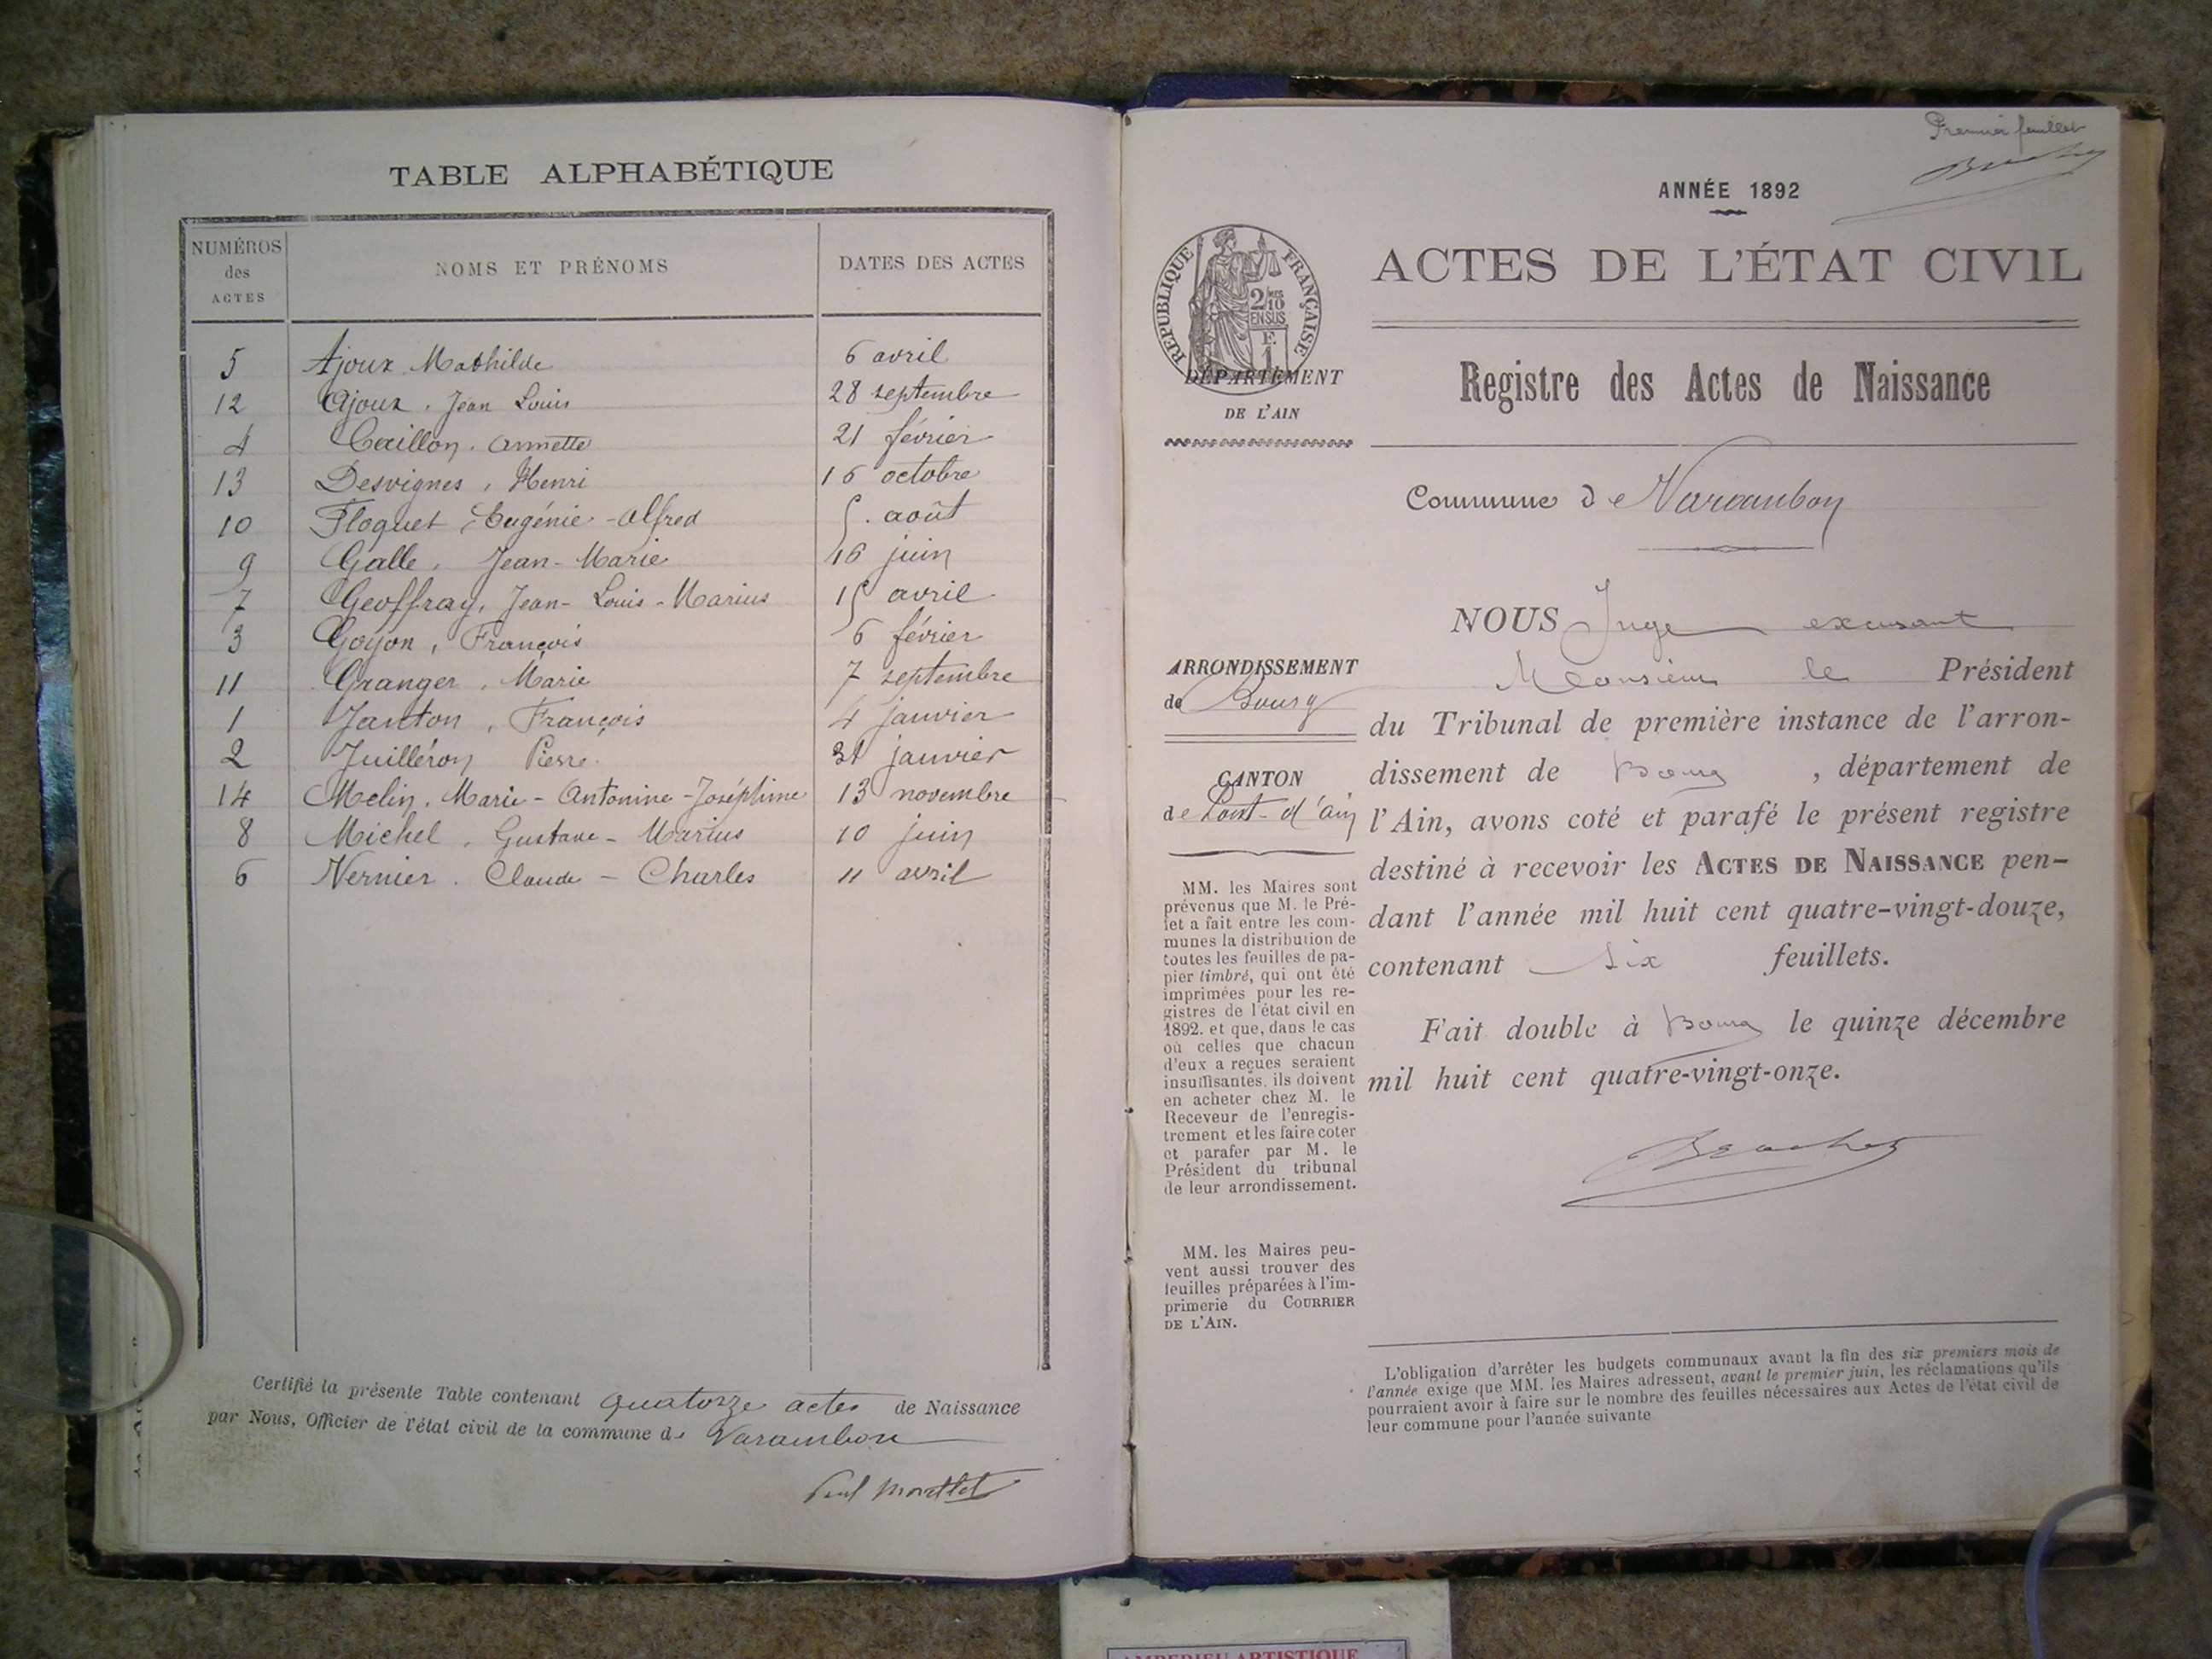 TABLE ALPHABÉTIQUE
NUMÉROS des ACTES NOMS ET PRÉNOMS DATES DES ACTES
5 Ajoux Mathilde 6 avril
12 Ajoux, Jean Louis 28 septembre
4 Caillon, Annette 21 février
13 Desvignes, Henri 16 octobre
10 Floquet, Eugénie-Alfred 5 août
9 Galle, Jean-Marie 16 juin
7 Geoffray, Jean-Louis-Marius 15 avril
3 Goyon, François 6 février
11 Granger, Marie 7 septembre
1 Janton, François 4 janvier
2 Juilléron Pierre 31 janvier
14 Melin, Marie-Antonine-Joséphine 13 novembre
8 Michel, Gustave-Marius 10 juin
6 Vernier, Claude-Charles 11 avril
Certifié la présente Table contenant quatorze actes de Naissance
par Nous, Officier de l'état civil de la commune de Varambon
Paul
Premier feuillet
ANNÉE 1892
RÉPUBLIQUE FRANÇAISE
2/10 EN SUS
F. 1
ACTES DE L'ÉTAT CIVIL
Registre des Actes de Naissance
DÉPARTEMENT
DE L'AIN
Commune de Varambon
ARRONDISSEMENT
de Bourg
CANTON
de Pont-d'ain
MM. les Maires sont
prévenus que M. le Pré-
fet a fait entre les com-
munes la distribution de
toutes les feuilles de pa-
pier timbré, qui ont été
imprimées pour les re-
gistres de l'état civil en
1892, et que, dans le cas
où celles que chacun
d'eux a reçues seraient
insuffisantes, ils doivent
en acheter chez M. le
Receveur de l'enregis-
trement et les faire coter
et parafer par M. le
Président du tribunal
de leur arrondissement.
MM. les Maires peu-
vent aussi trouver des
feuilles préparées à l'im-
primerie du COURRIER
DE L'AIN.
NOUS Juge excusant
Monsieur le Président
du Tribunal de première instance de l'arron-
dissement de Bourg, département de
l'Ain, avons coté et parafé le présent registre
destiné à recevoir les ACTES DE NAISSANCE pen-
dant l'année mil huit cent quatre-vingt-douze,
contenant six feuillets.
Fait double à Bourg le quinze décembre
mil huit cent quatre-vingt-onze.
L'obligation d'arrêter les budgets communaux avant la fin des six premiers mois de
l'année exige que MM. les Maires adressent, avant le premier juin, les réclamations qu'ils
pourraient avoir à faire sur le nombre des feuilles nécessaires aux Actes de l'état civil de
leur commune pour l'année suivante